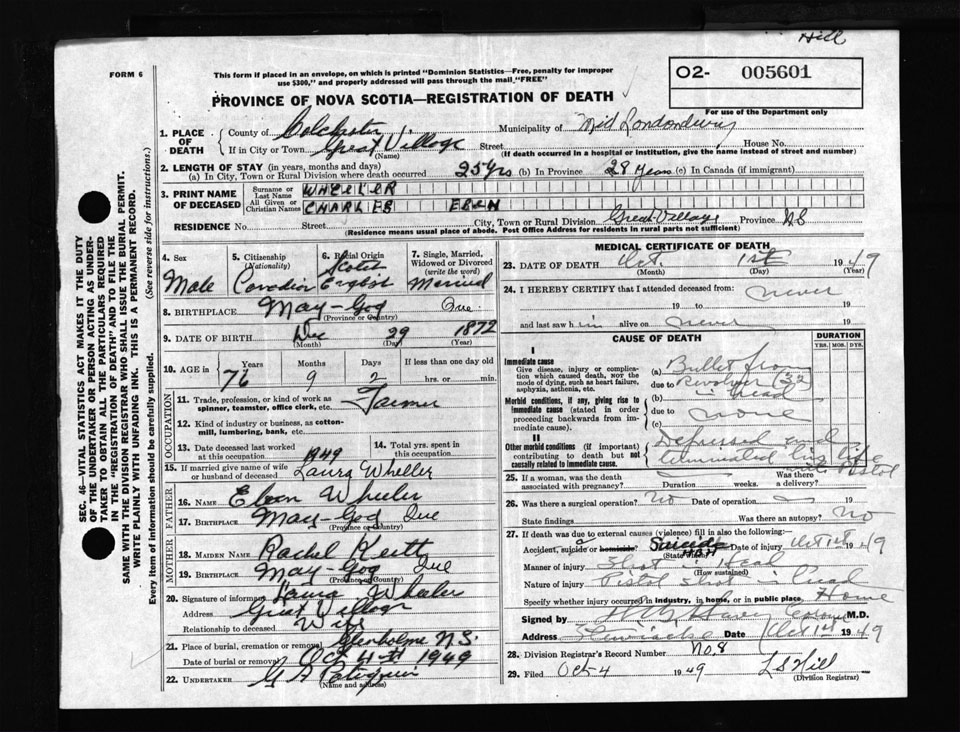 Hill
FORM 6
This form if placed in an envelope, on which is printed "Dominion Statistics—Free, penalty for improper
use $300," and properly addressed will pass through the mail "FREE"
O2- 005601
PROVINCE OF NOVA SCOTIA—REGISTRATION OF DEATH
For use of the Department only
1. PLACE OF DEATH
County of Colchester Municipality of Mid Londonderry
If in City or Town Great Village Street House No.
(Name) (If death occurred in a hospital or institution, give the name instead of street and number)
2. LENGTH OF STAY (in years, months and days)
(a) In City, Town or Rural Division where death occurred 25 yrs (b) In Province 28 Years (c) In Canada (if immigrant)
3. PRINT NAME OF DECEASED
Surname or Last Name WHEELER
All Given or Christian Names CHARLES EBEN
RESIDENCE No. Street City, Town or Rural Division Great Village Province NS
(Residence means usual place of abode. Post Office Address for residents in rural parts not sufficient)
4. Sex
Male
5. Citizenship (Nationality)
Canadian
6. Racial Origin
Scotch
English
7. Single, Married, Widowed or Divorced (write the word)
Married
8. BIRTHPLACE May-Gog Que.
(Province or Country)
9. DATE OF BIRTH Dec 29 1872
(Month) (Day) (Year)
10. AGE in Years Months Days If less than one day old
76 9 2 hrs. or min.
OCCUPATION
11. Trade, profession, or kind of work as spinner, teamster, office clerk, etc. Farmer
12. Kind of industry or business, as cotton-mill, lumbering, bank, etc.
13. Date deceased last worked at this occupation 1949
14. Total yrs. spent in this occupation
15. If married give name of wife or husband of deceased Laura Wheeler
FATHER
16. NAME Eben Wheeler
17. BIRTHPLACE May-Gog Que
(Province or Country)
MOTHER
18. MAIDEN NAME Rachel Keitt
19. BIRTHPLACE May-Gog Que
(Province or Country)
20. Signature of informant Laura Wheeler
Address Great Village
Relationship to deceased Wife
21. Place of burial, cremation or removal Glenholme N.S.
Date of burial or removal Oct 4th 1949
22. UNDERTAKER G A
(Name and address)
MEDICAL CERTIFICATE OF DEATH
23. DATE OF DEATH Oct. 1st 1949
(Month) (Day) (Year)
24. I HEREBY CERTIFY that I attended deceased from: never
19 to 19
and last saw him alive on never 19
CAUSE OF DEATH
DURATION
YRS. MOS. DYS.
I
Immediate cause
Give disease, injury or complication which caused death, NOT the mode of dying, such as heart failure, asphyxia, asthenia, etc.
(a) Bullet from
due to revolver (32
(b) in head
Morbid conditions, if any, giving rise to immediate cause (stated in order proceeding backwards from immediate cause).
due to none
(c)
II
Other morbid conditions (if important) contributing to death but not causally related to immediate cause.
Depressed and
terminated his life
with Pistol
25. If a woman, was the death associated with pregnancy? Duration weeks. Was there a delivery?
26. Was there a surgical operation? No Date of operation 19
State findings Was there an autopsy? No
27. If death was due to external causes (violence) fill in also the following:
Accident, suicide or homicide? Suicide Date of injury Oct 1st 1949
(State which)
Manner of injury Shot in Head
(How sustained)
Nature of injury Pistol shot in head
Specify whether injury occurred in industry, in home, or in public place. Home
Signed by Coroner M.D.
Address Date Oct 1st 1949
28. Division Registrar's Record Number No. 8
29. Filed Oct-4 1949 L S Hill
(Division Registrar)
SEC. 46—VITAL STATISTICS ACT MAKES IT THE DUTY
OF THE UNDERTAKER OR PERSON ACTING AS UNDER-
TAKER TO OBTAIN ALL THE PARTICULARS REQUIRED
IN THE "REGISTRATION OF DEATH" AND TO FILE THE
SAME WITH THE DIVISION REGISTRAR WHO SHALL ISSUE THE BURIAL PERMIT.
WRITE PLAINLY WITH UNFADING INK. THIS IS A PERMANENT RECORD.
Every item of information should be carefully supplied. (See reverse side for instructions.)